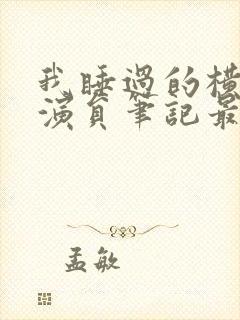 我睡過的
演員筆記最
孟敏